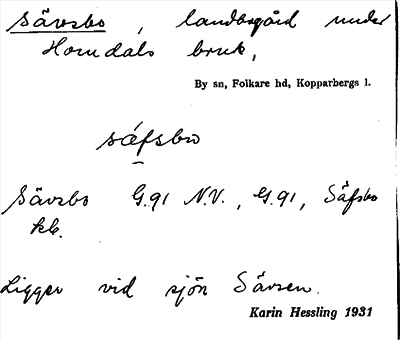 Sävsbo, landbogård under
Horndals bruk,
By sn, Folkare hd, Kopparbergs l.
säfsbω
Sävsbo G.91 N.V., G.91, Säfsbo
kb.
Ligger vid sjön Sävsen.
Karin Hessling 1931